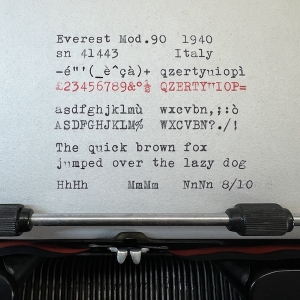 Everest Mod.90 1940
sn 41443 Italy
-é"'(_è^çà)+ qzertyuiopì
£23456789&º½ QZERTYUIOP=
asdfghjklmù wxcvbn,;:ò
ASDFGHJKLM% WXCVBN?./!
The quick brown fox
jumped over the lazy dog
HhHh MmMm NnNn 8/10